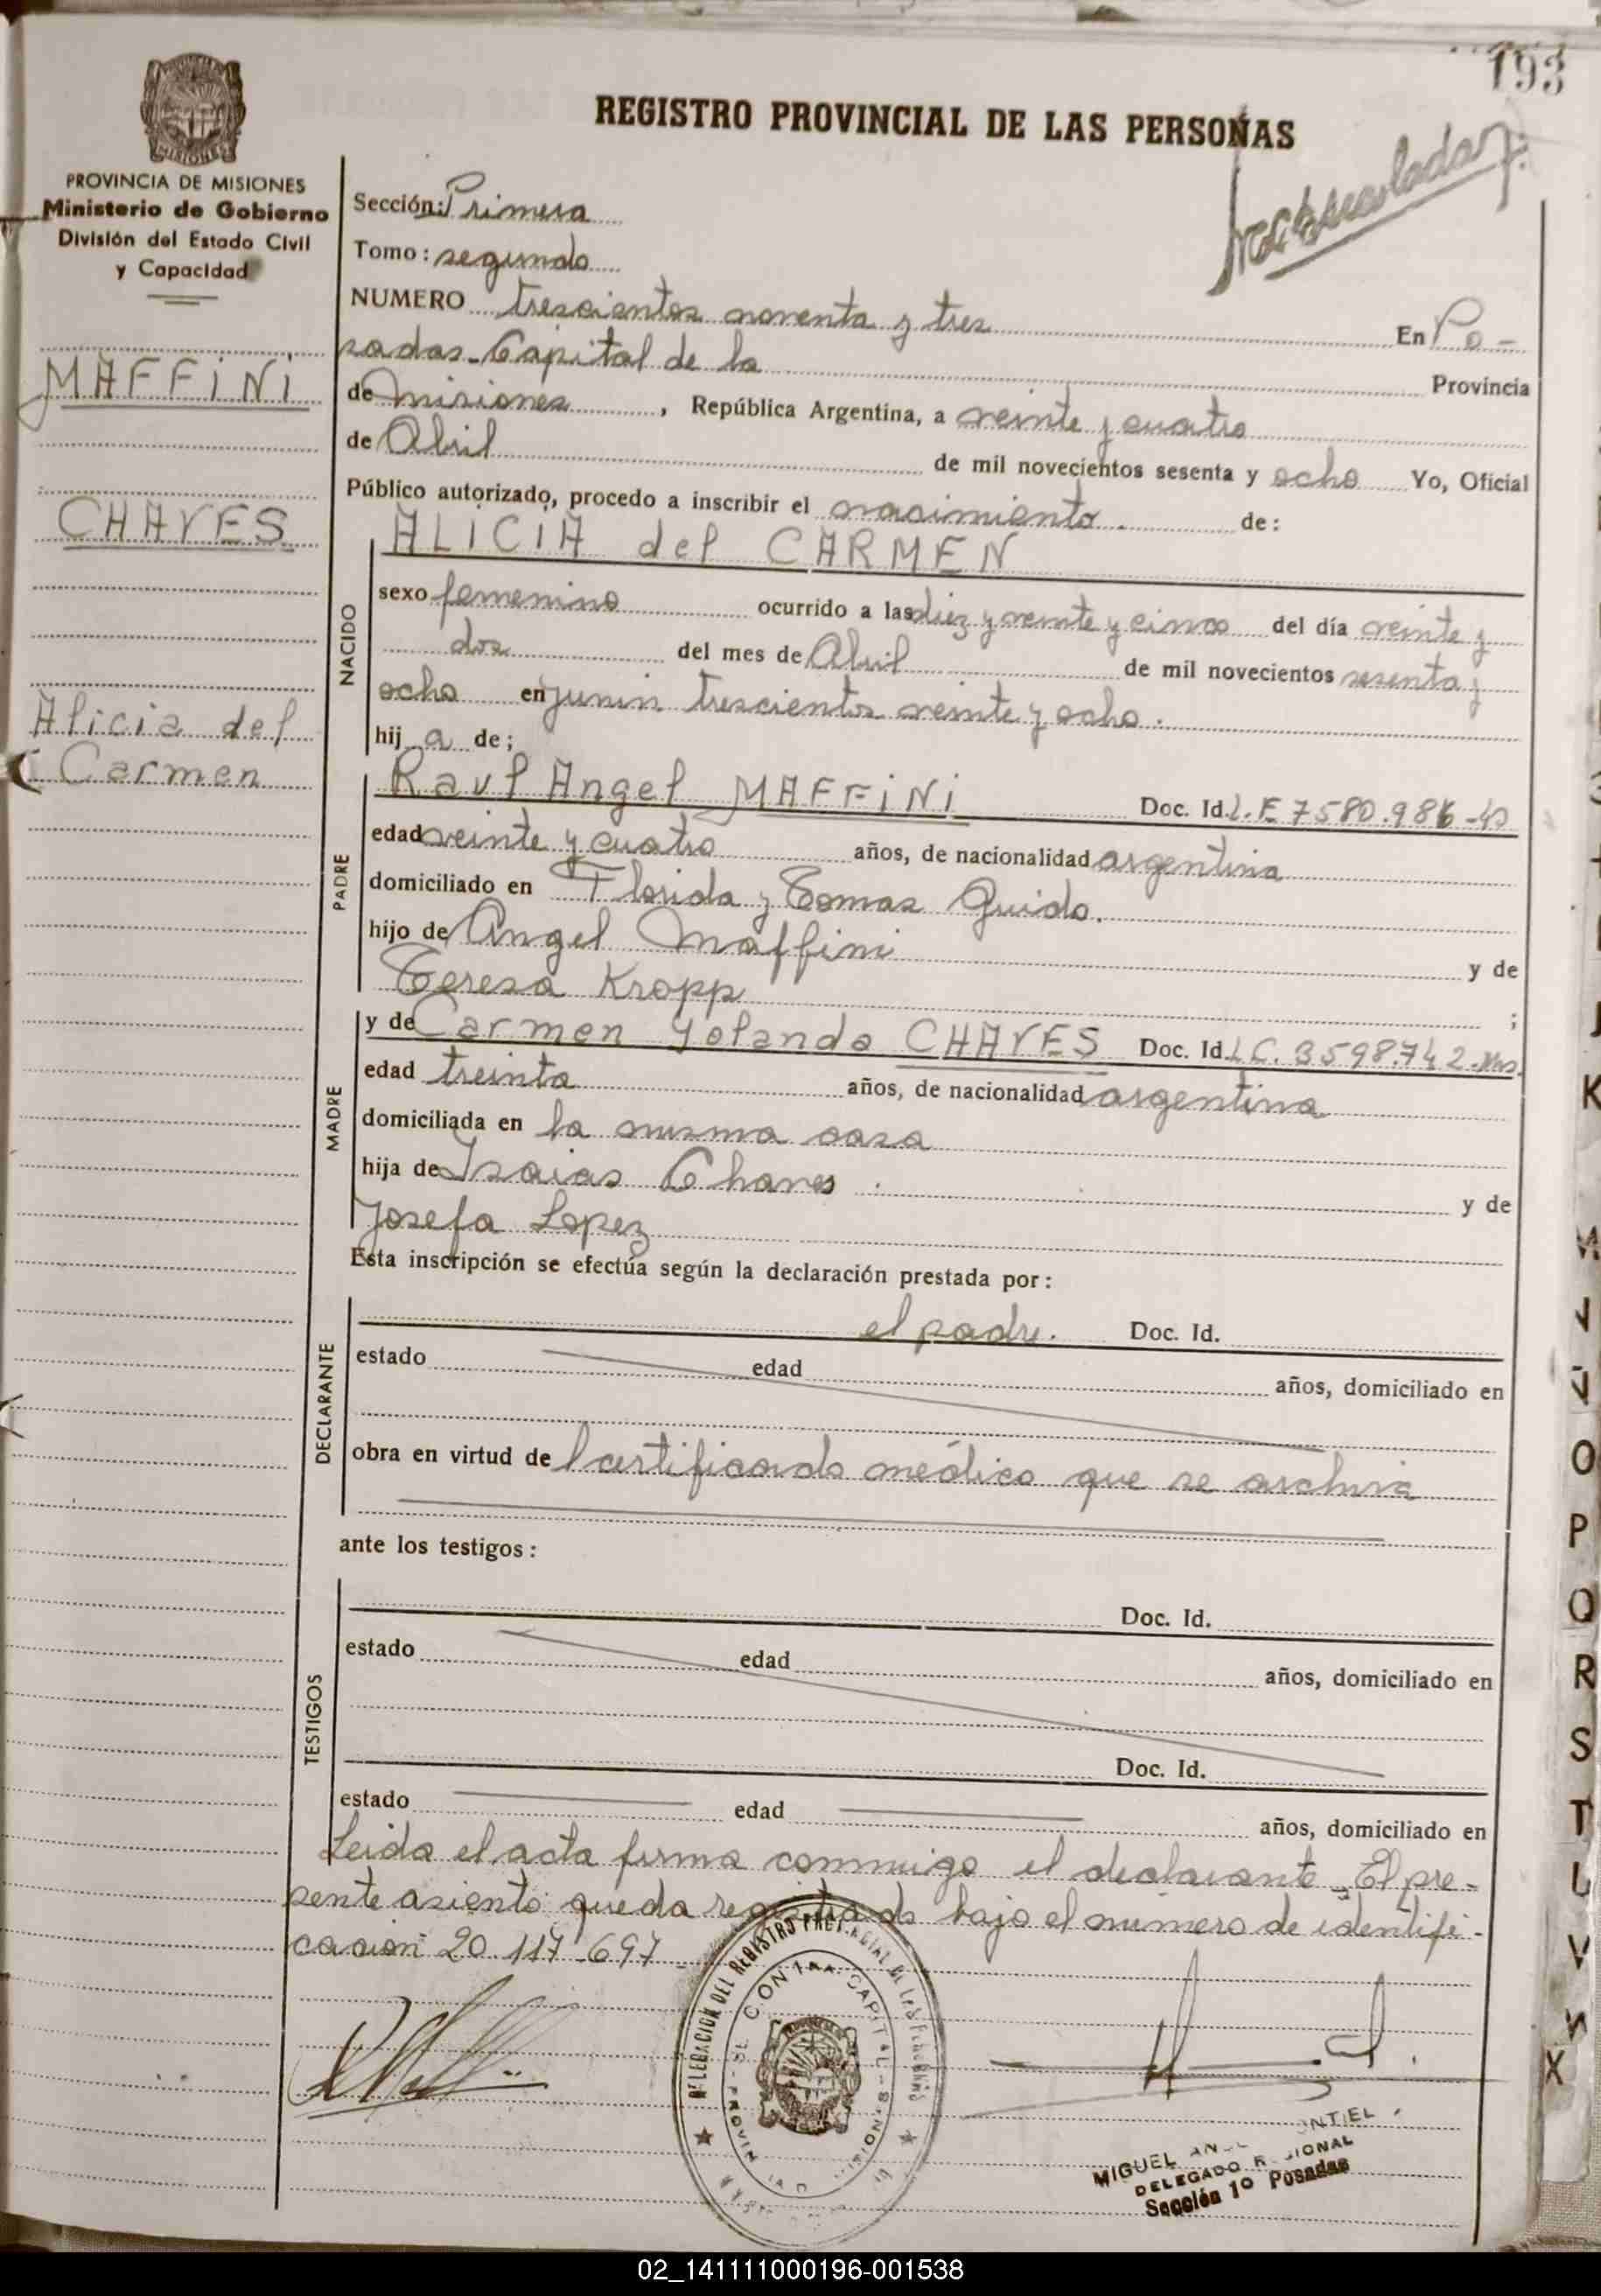 193
REGISTRO PROVINCIAL DE LAS PERSONAS
PROVINCIA DE MISIONES
Ministerio de Gobierno
División del Estado Civil
y Capacidad
MAFFINI
CHAVES
Alicia del
Carmen
Sección: Primera
Tomo: segundo
NUMERO trescientos noventa y tres En Po-
sadas-Capital de la Provincia
de Misiones, República Argentina, a veinte y cuatro
de Abril de mil novecientos sesenta y ocho Yo, Oficial
Público autorizado, procedo a inscribir el nacimiento. de:
NACIDO
ALICIA del CARMEN
sexo femenino ocurrido a las diez y veinte y cinco del día veinte y
dos del mes de Abril de mil novecientos sesenta y
ocho en junin trescientos veinte y ocho.
hij a de;
PADRE
Raul Angel MAFFINI Doc. Id. L.E. 7580.986
edad veinte y cuatro años, de nacionalidad argentina
domiciliado en Florida y Tomas Guido.
hijo de Angel Maffini y de
Teresa Kropp ;
MADRE
y de Carmen Yolanda CHAVES Doc. Id. L.C. 3598.742
edad treinta años, de nacionalidad argentina
domiciliada en la misma casa
hija de Isaias Chaves y de
Josefa Lopez
Esta inscripción se efectúa según la declaración prestada por:
DECLARANTE
el padre. Doc. Id.
estado edad años, domiciliado en
obra en virtud de certificado médico que se archiva
ante los testigos:
TESTIGOS
Doc. Id.
estado edad años, domiciliado en
Doc. Id.
estado edad años, domiciliado en
Leida el acta firma conmigo el declarante_El pre-
sente asiento queda registrado bajo el número de identifi-
cación 20.117.697
DELEGACION DEL REGISTRO PROVINCIAL DE LAS PERSONAS
CAPITAL
MIGUEL
DELEGADO
Sección 1º Posadas
K
O
P
Q
R
S
T
U
V
X
02_141111000196-001538